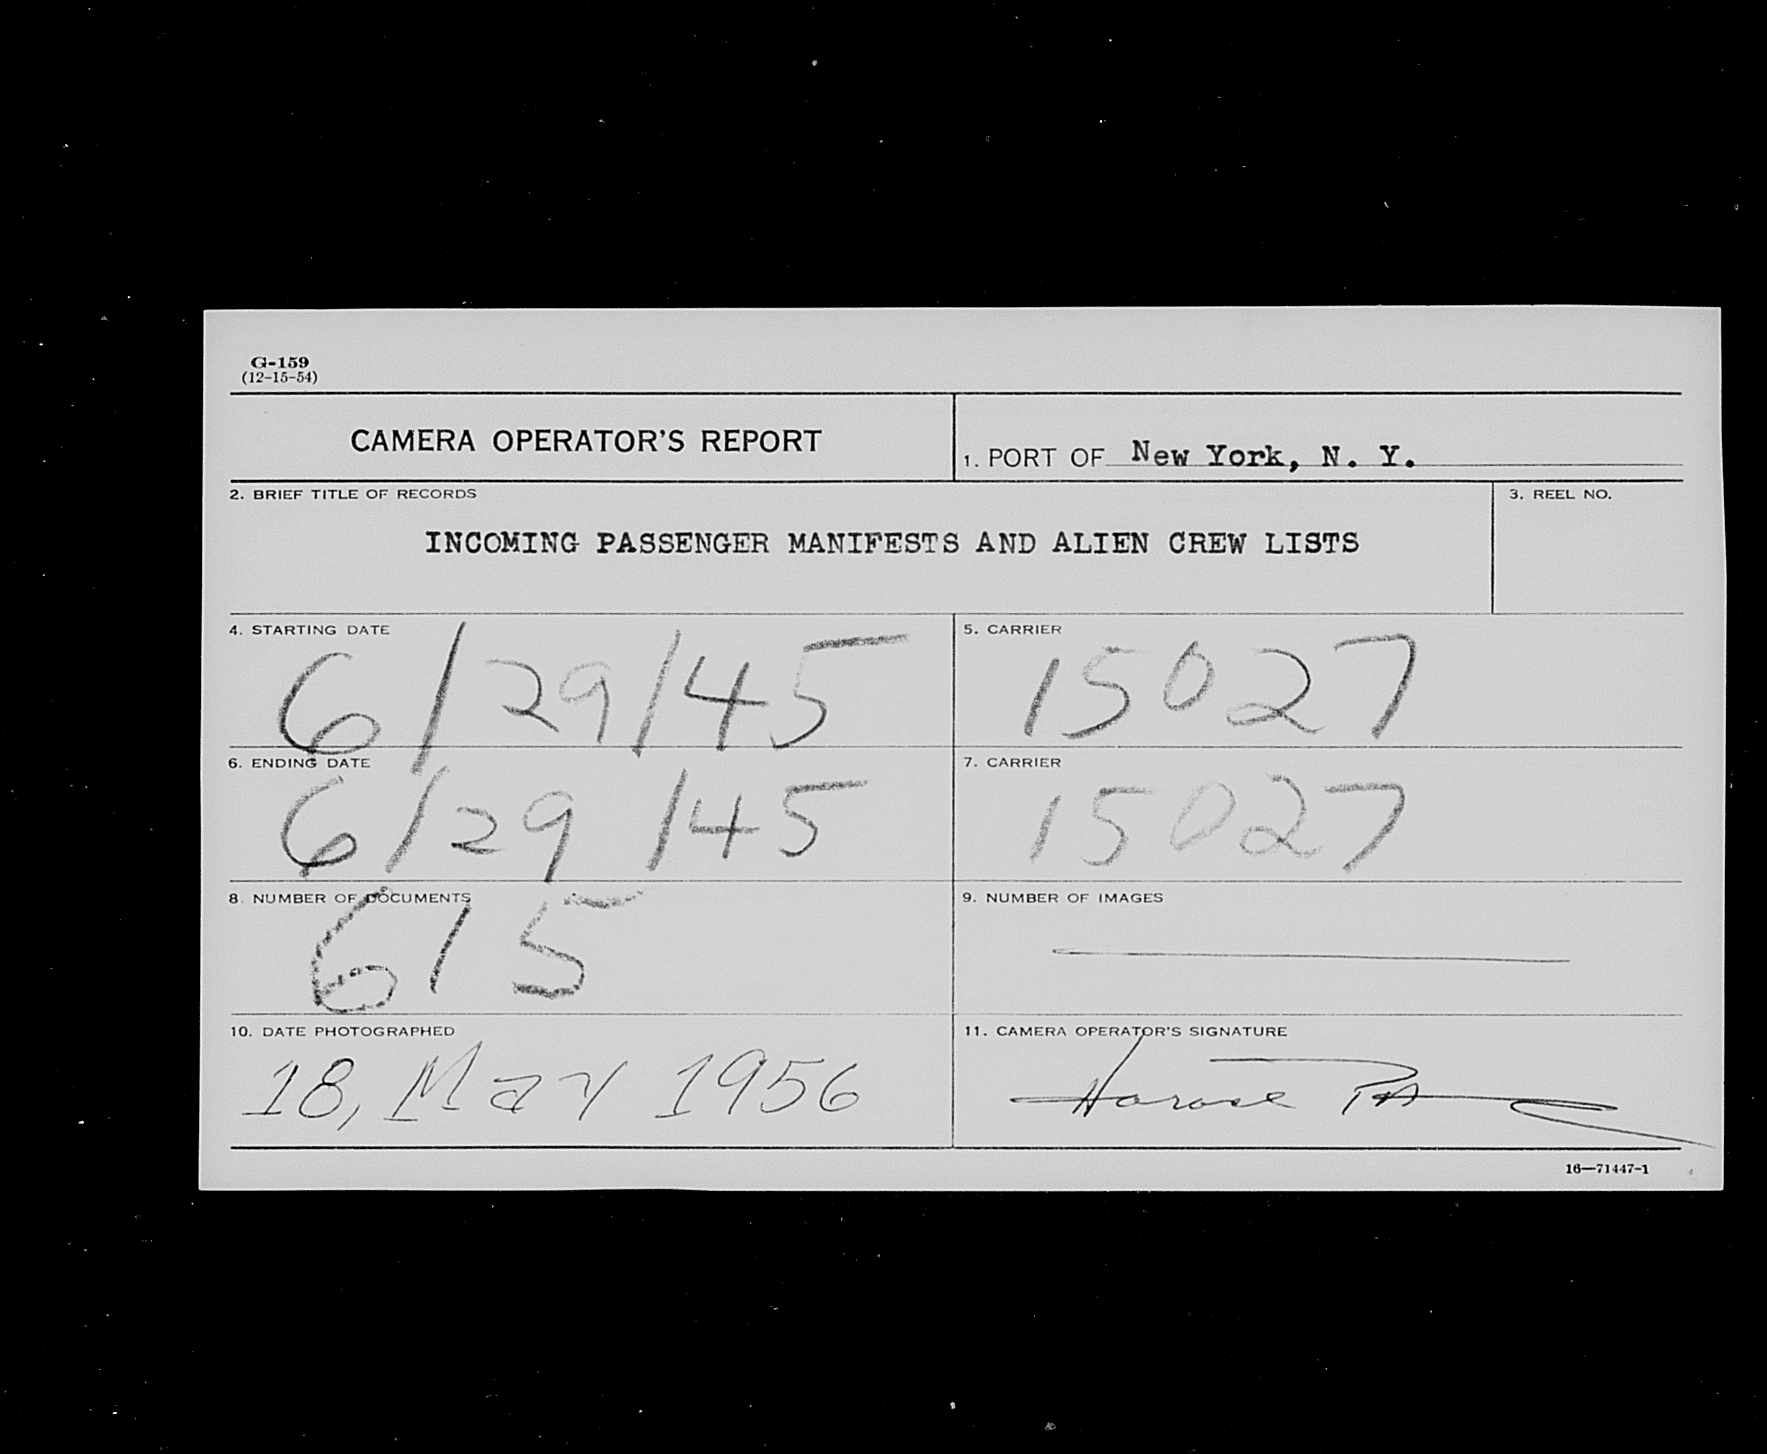 G-159
(12-15-54)
CAMERA OPERATOR'S REPORT
1. PORT OF New York, N. Y.
2. BRIEF TITLE OF RECORDS
INCOMING PASSENGER MANIFESTS AND ALIEN CREW LISTS
3. REEL NO.
4. STARTING DATE
6/29/45
5. CARRIER
15027
6. ENDING DATE
6/29/45
7. CARRIER
15027
8. NUMBER OF DOCUMENTS
615
9. NUMBER OF IMAGES
10. DATE PHOTOGRAPHED
18, May 1956
11. CAMERA OPERATOR'S SIGNATURE
16—71447-1